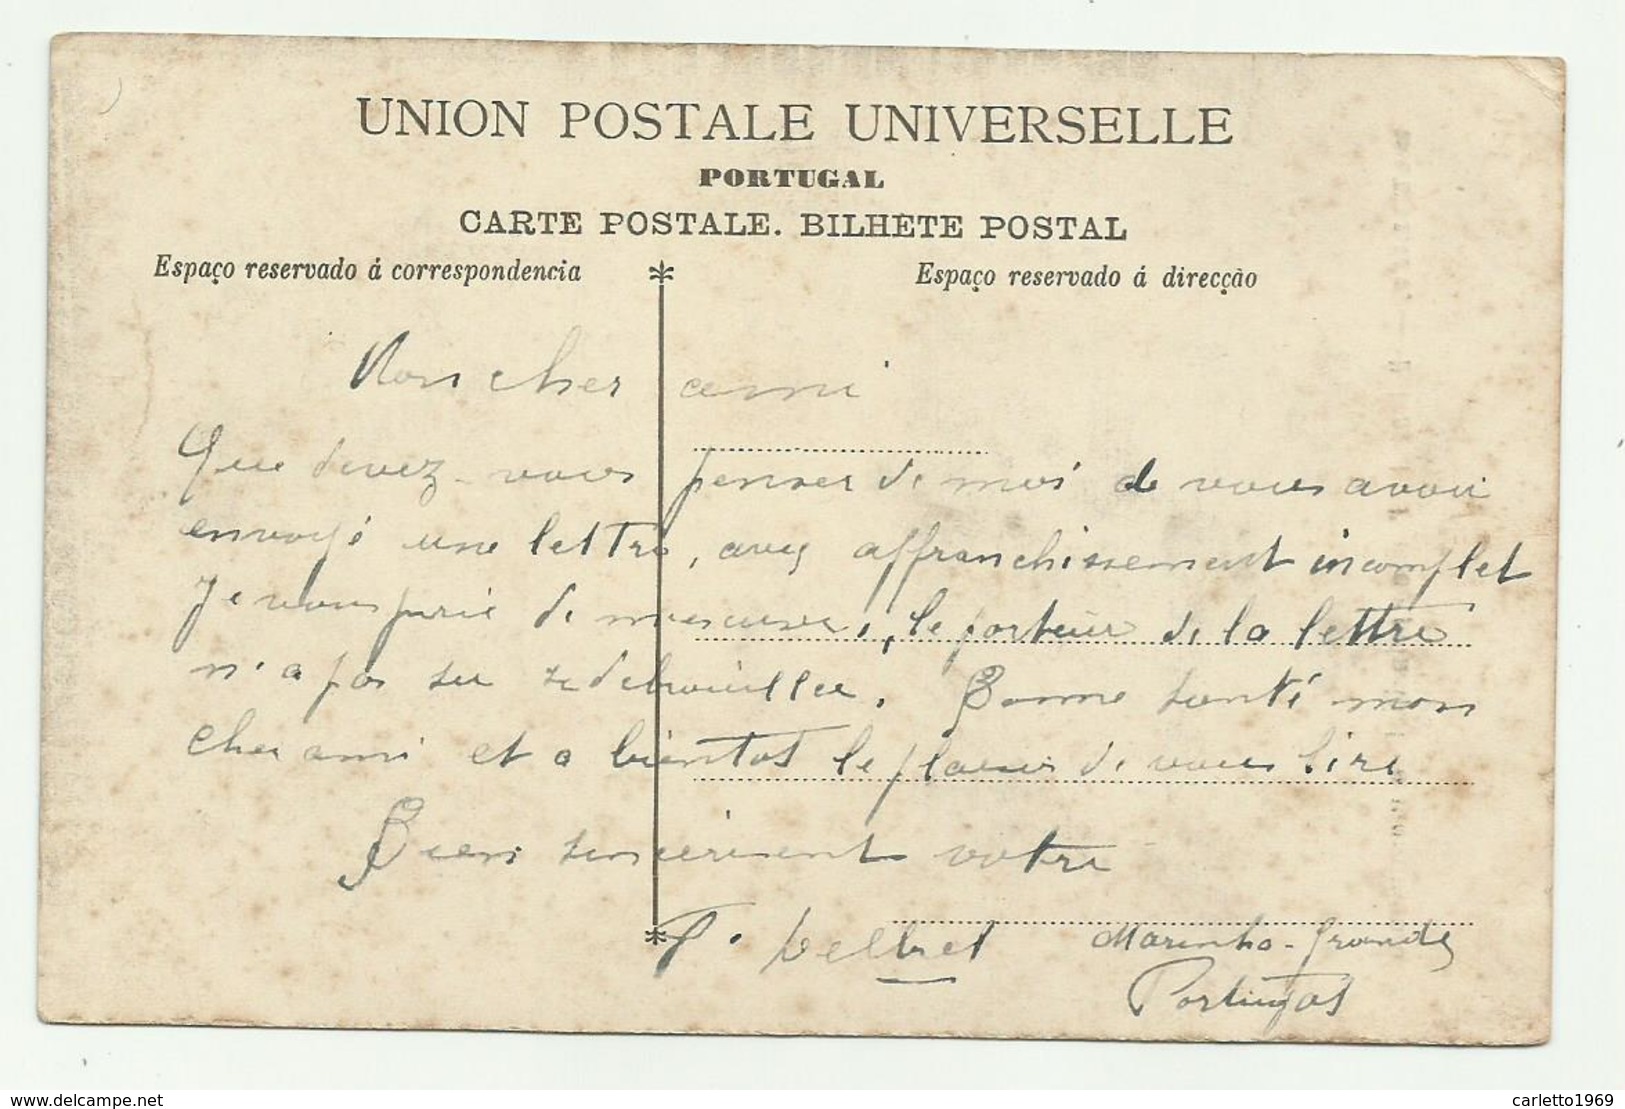 UNION POSTALE UNIVERSELLE
PORTUGAL
CARTE POSTALE. BILHETE POSTAL
Espaço reservado á correspondencia
Espaço reservado á direcção
Mon cher ami
Que devez-vous penser de moi de vous avoir
envoyé une lettre, avec affranchissement incomplet
Je vous prie de m'excuser, le porteur de la lettre
n'a pas su se debrouiller. Bonne santé mon
cher ami et a bientot le plaisir de vous lire
Bien sincèrement votre
Marinha-Grande
Portugal
www.delcampe.net
carletto1969